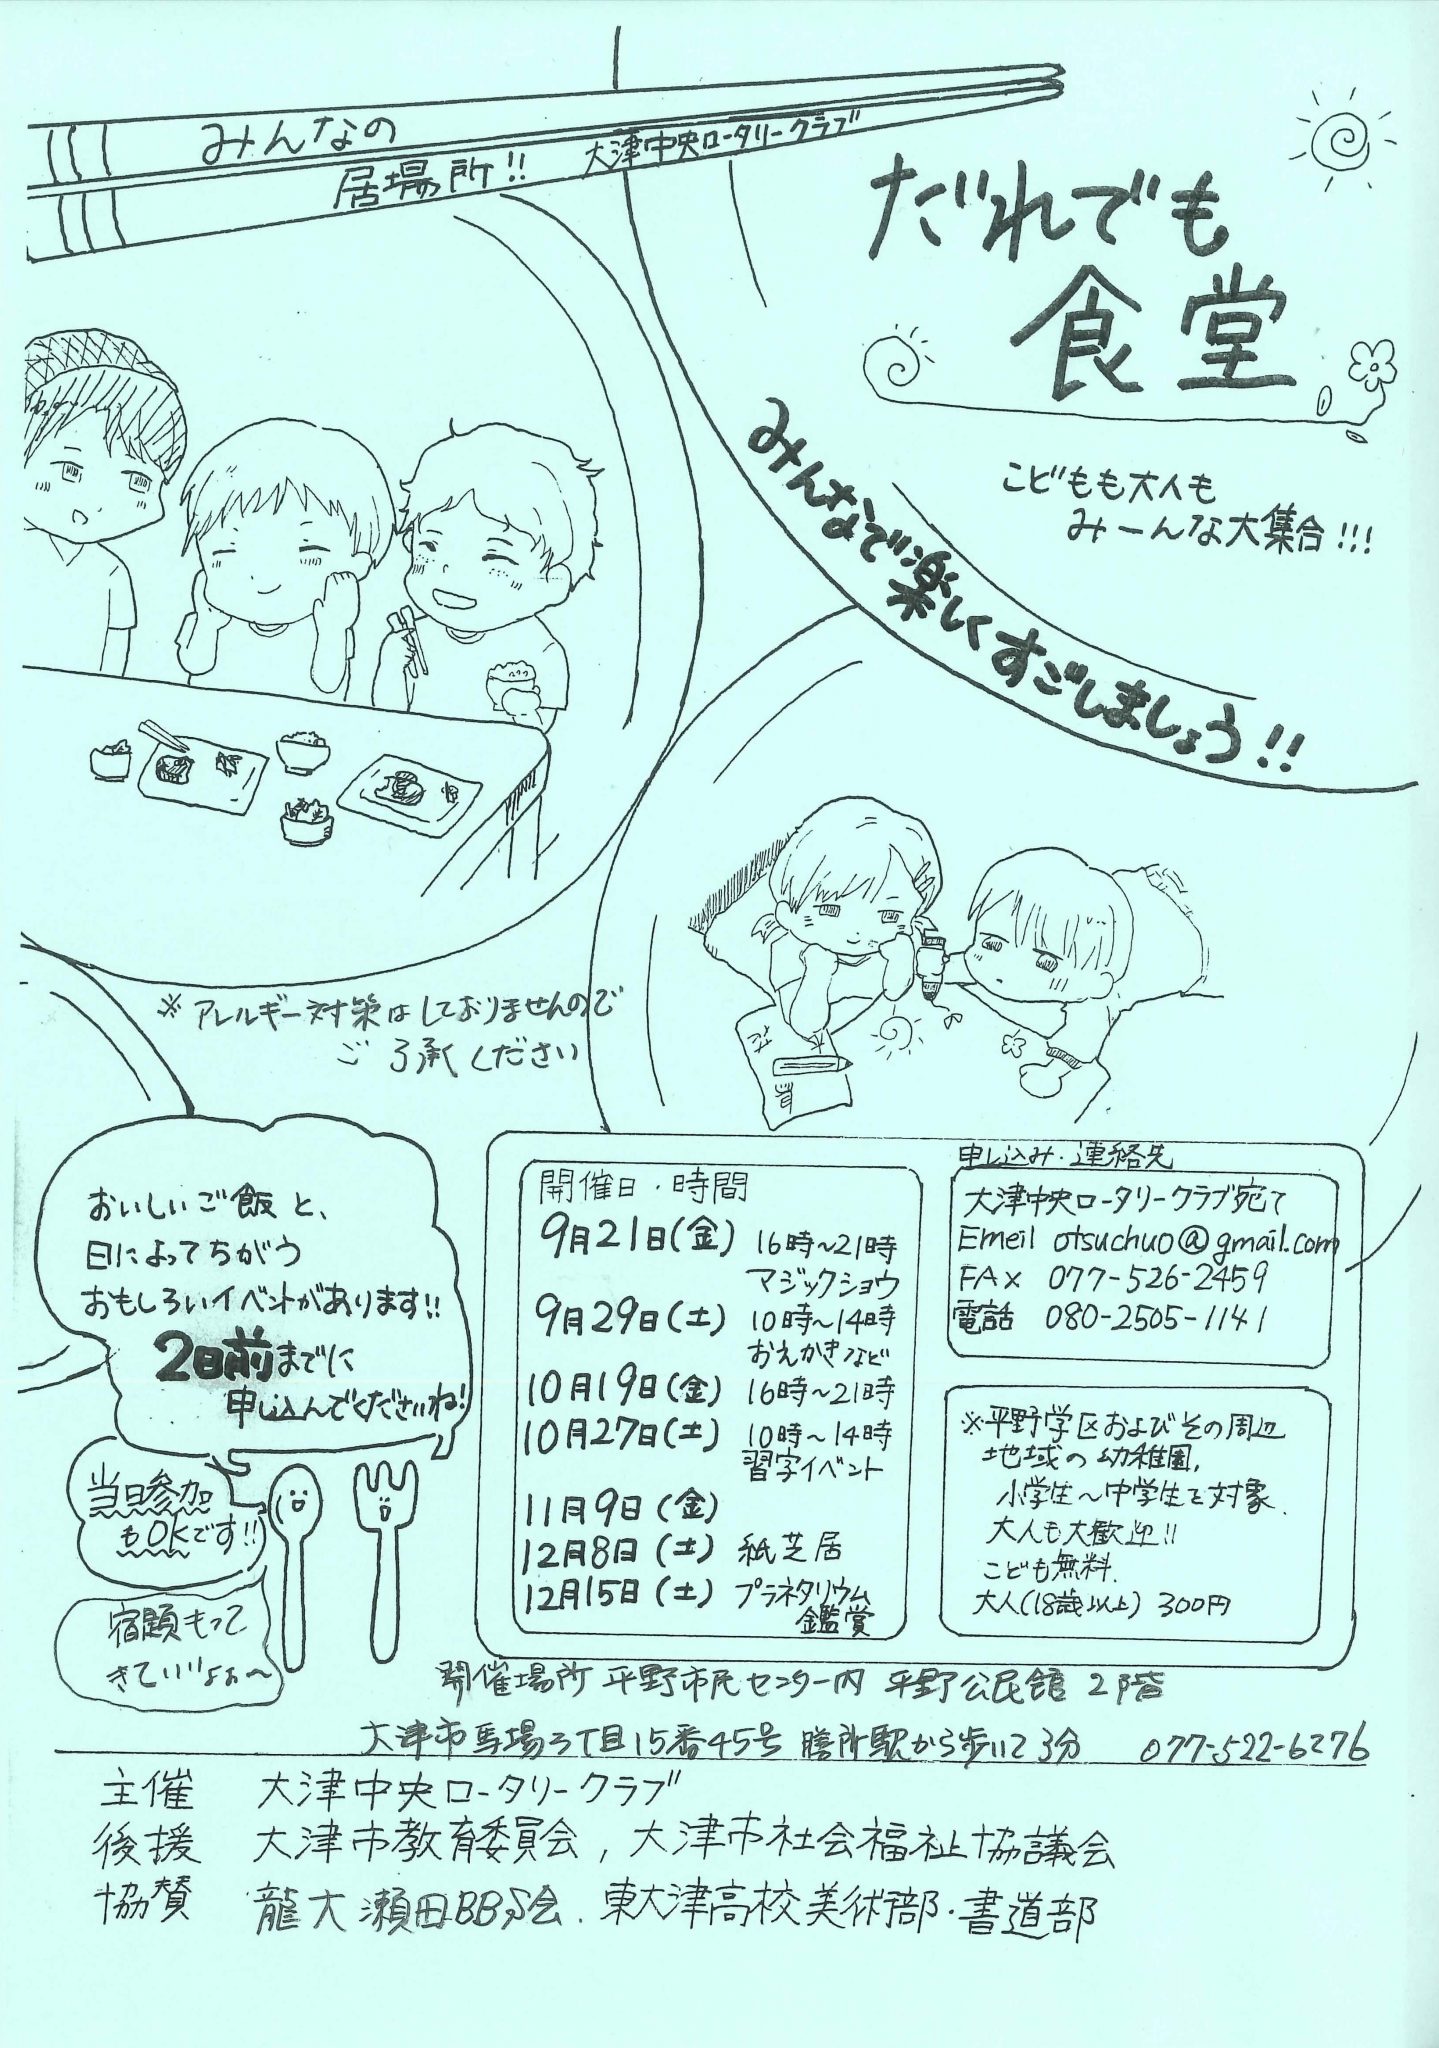 みんなの
居場所!!
大津中央ロータリークラブ
だれでも
食堂
こどもも大人も
みーんな大集合!!!
みんなで楽しくすごしましょう!!
※アレルギー対策はしておりませんので
ご了承ください
おいしいご飯と、
日によってちがう
おもしろいイベントがあります!!
2日前までに
申し込んでくださいね!
当日参加
もOKです!!
宿題もって
きていいよぉ〜
開催日・時間
9月21日(金) 16時〜21時
マジックショウ
9月29日(土) 10時〜14時
おえかきなど
10月19日(金) 16時〜21時
10月27日(土) 10時〜14時
習字イベント
11月9日(金)
12月8日(土) 紙芝居
12月15日(土) プラネタリウム
鑑賞
申し込み・連絡先
大津中央ロータリークラブ宛て
Emeil otsuchuo@gmail.com
FAX 077-526-2459
電話 080-2505-1141
※平野学区およびその周辺
地域の幼稚園,
小学生〜中学生を対象.
大人も大歓迎!!
こども無料.
大人(18歳以上) 300円
開催場所 平野市民センター内 平野公民館 2階
大津市馬場3丁目15番45号 膳所駅から歩いて3分 077-522-6276
主催 大津中央ロータリークラブ
後援 大津市教育委員会, 大津市社会福祉協議会
協賛 龍大瀬田BBS会. 東大津高校美術部・書道部